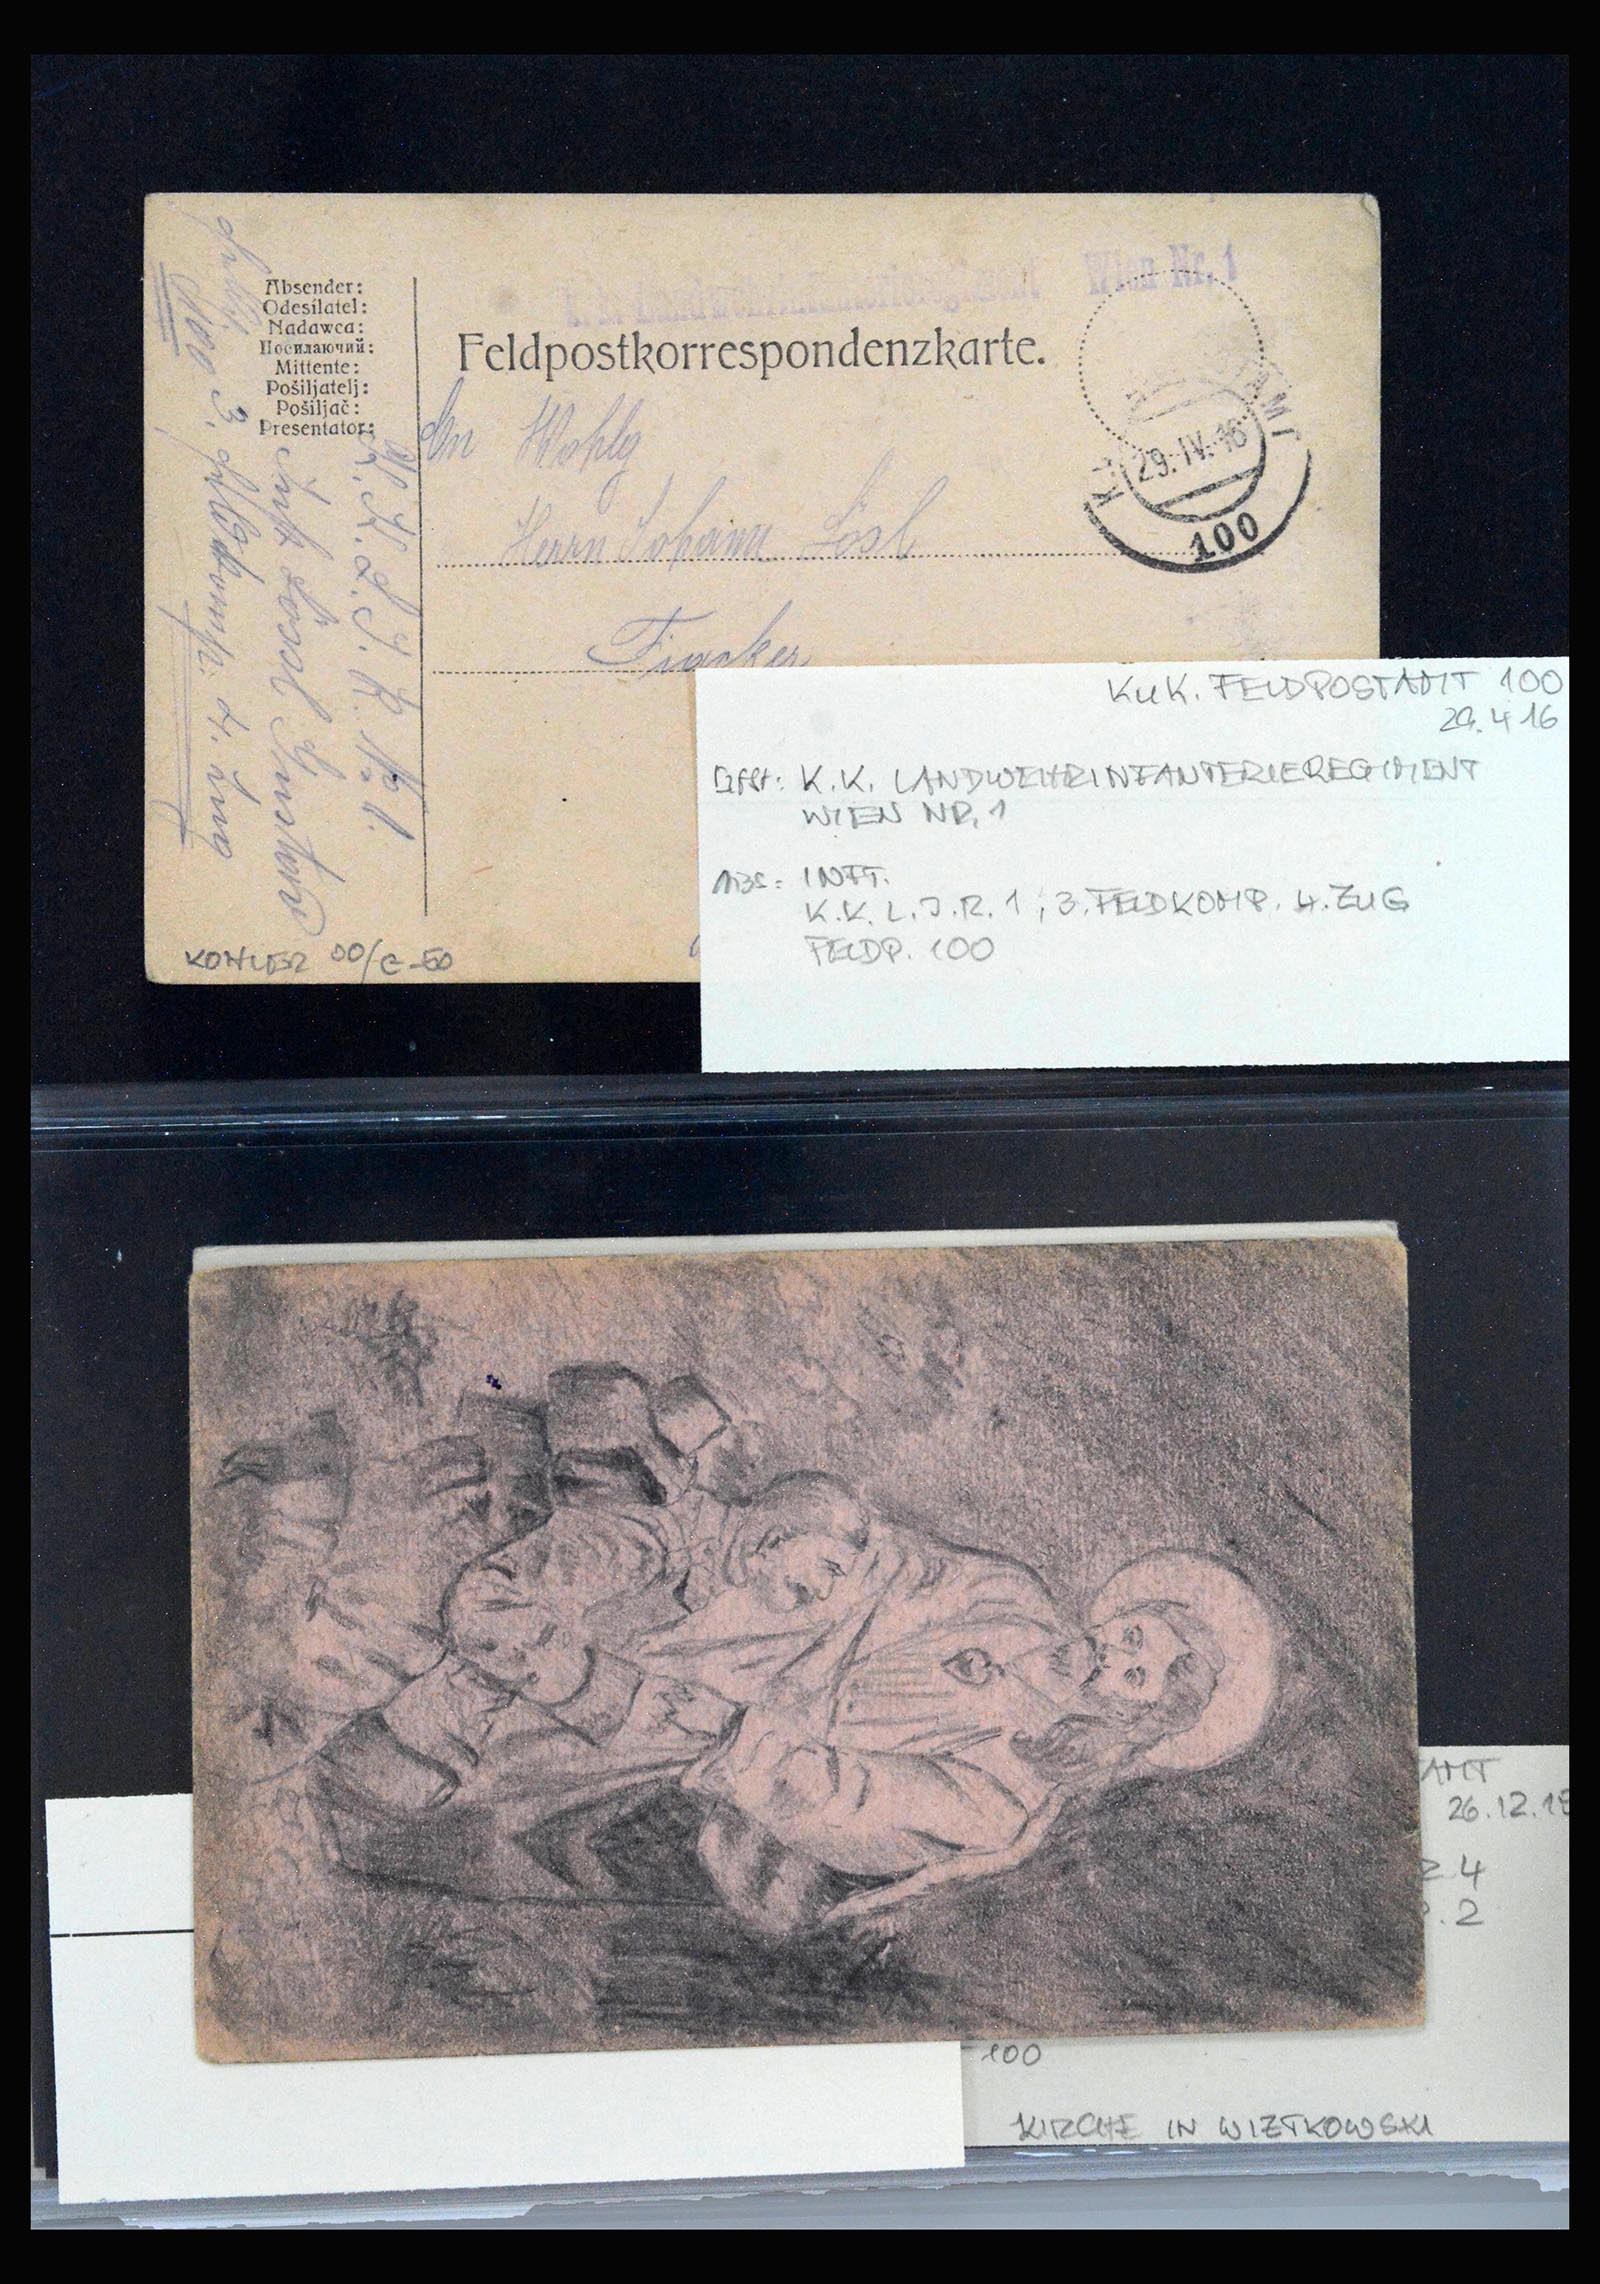 k. k. Landwehrinfanterieregiment Wien Nr. 1
Absender:
Odesilatel:
Nadawca:
Посилаючий:
Mittente:
Pošiljatelj:
Pošiljač:
Presentator:
Feldpostkorrespondenzkarte.
29.IV.16
100
An Wohlg
Herrn Johann Lösl
Fiacker
KUK. FELDPOSTAMT 100
29.4 16
K.K. LANDWEHRINFANTERIEREGIMENT
WIEN NR. 1
ABS: INFT.
K.K. L.J.R. 1, 3.FELDKOMP. 4.ZUG
FELDP. 100
KOHLER 00/C-50
AMT
26.12.15
4
2
100
KIRCHE IN WIZTKOWSKI